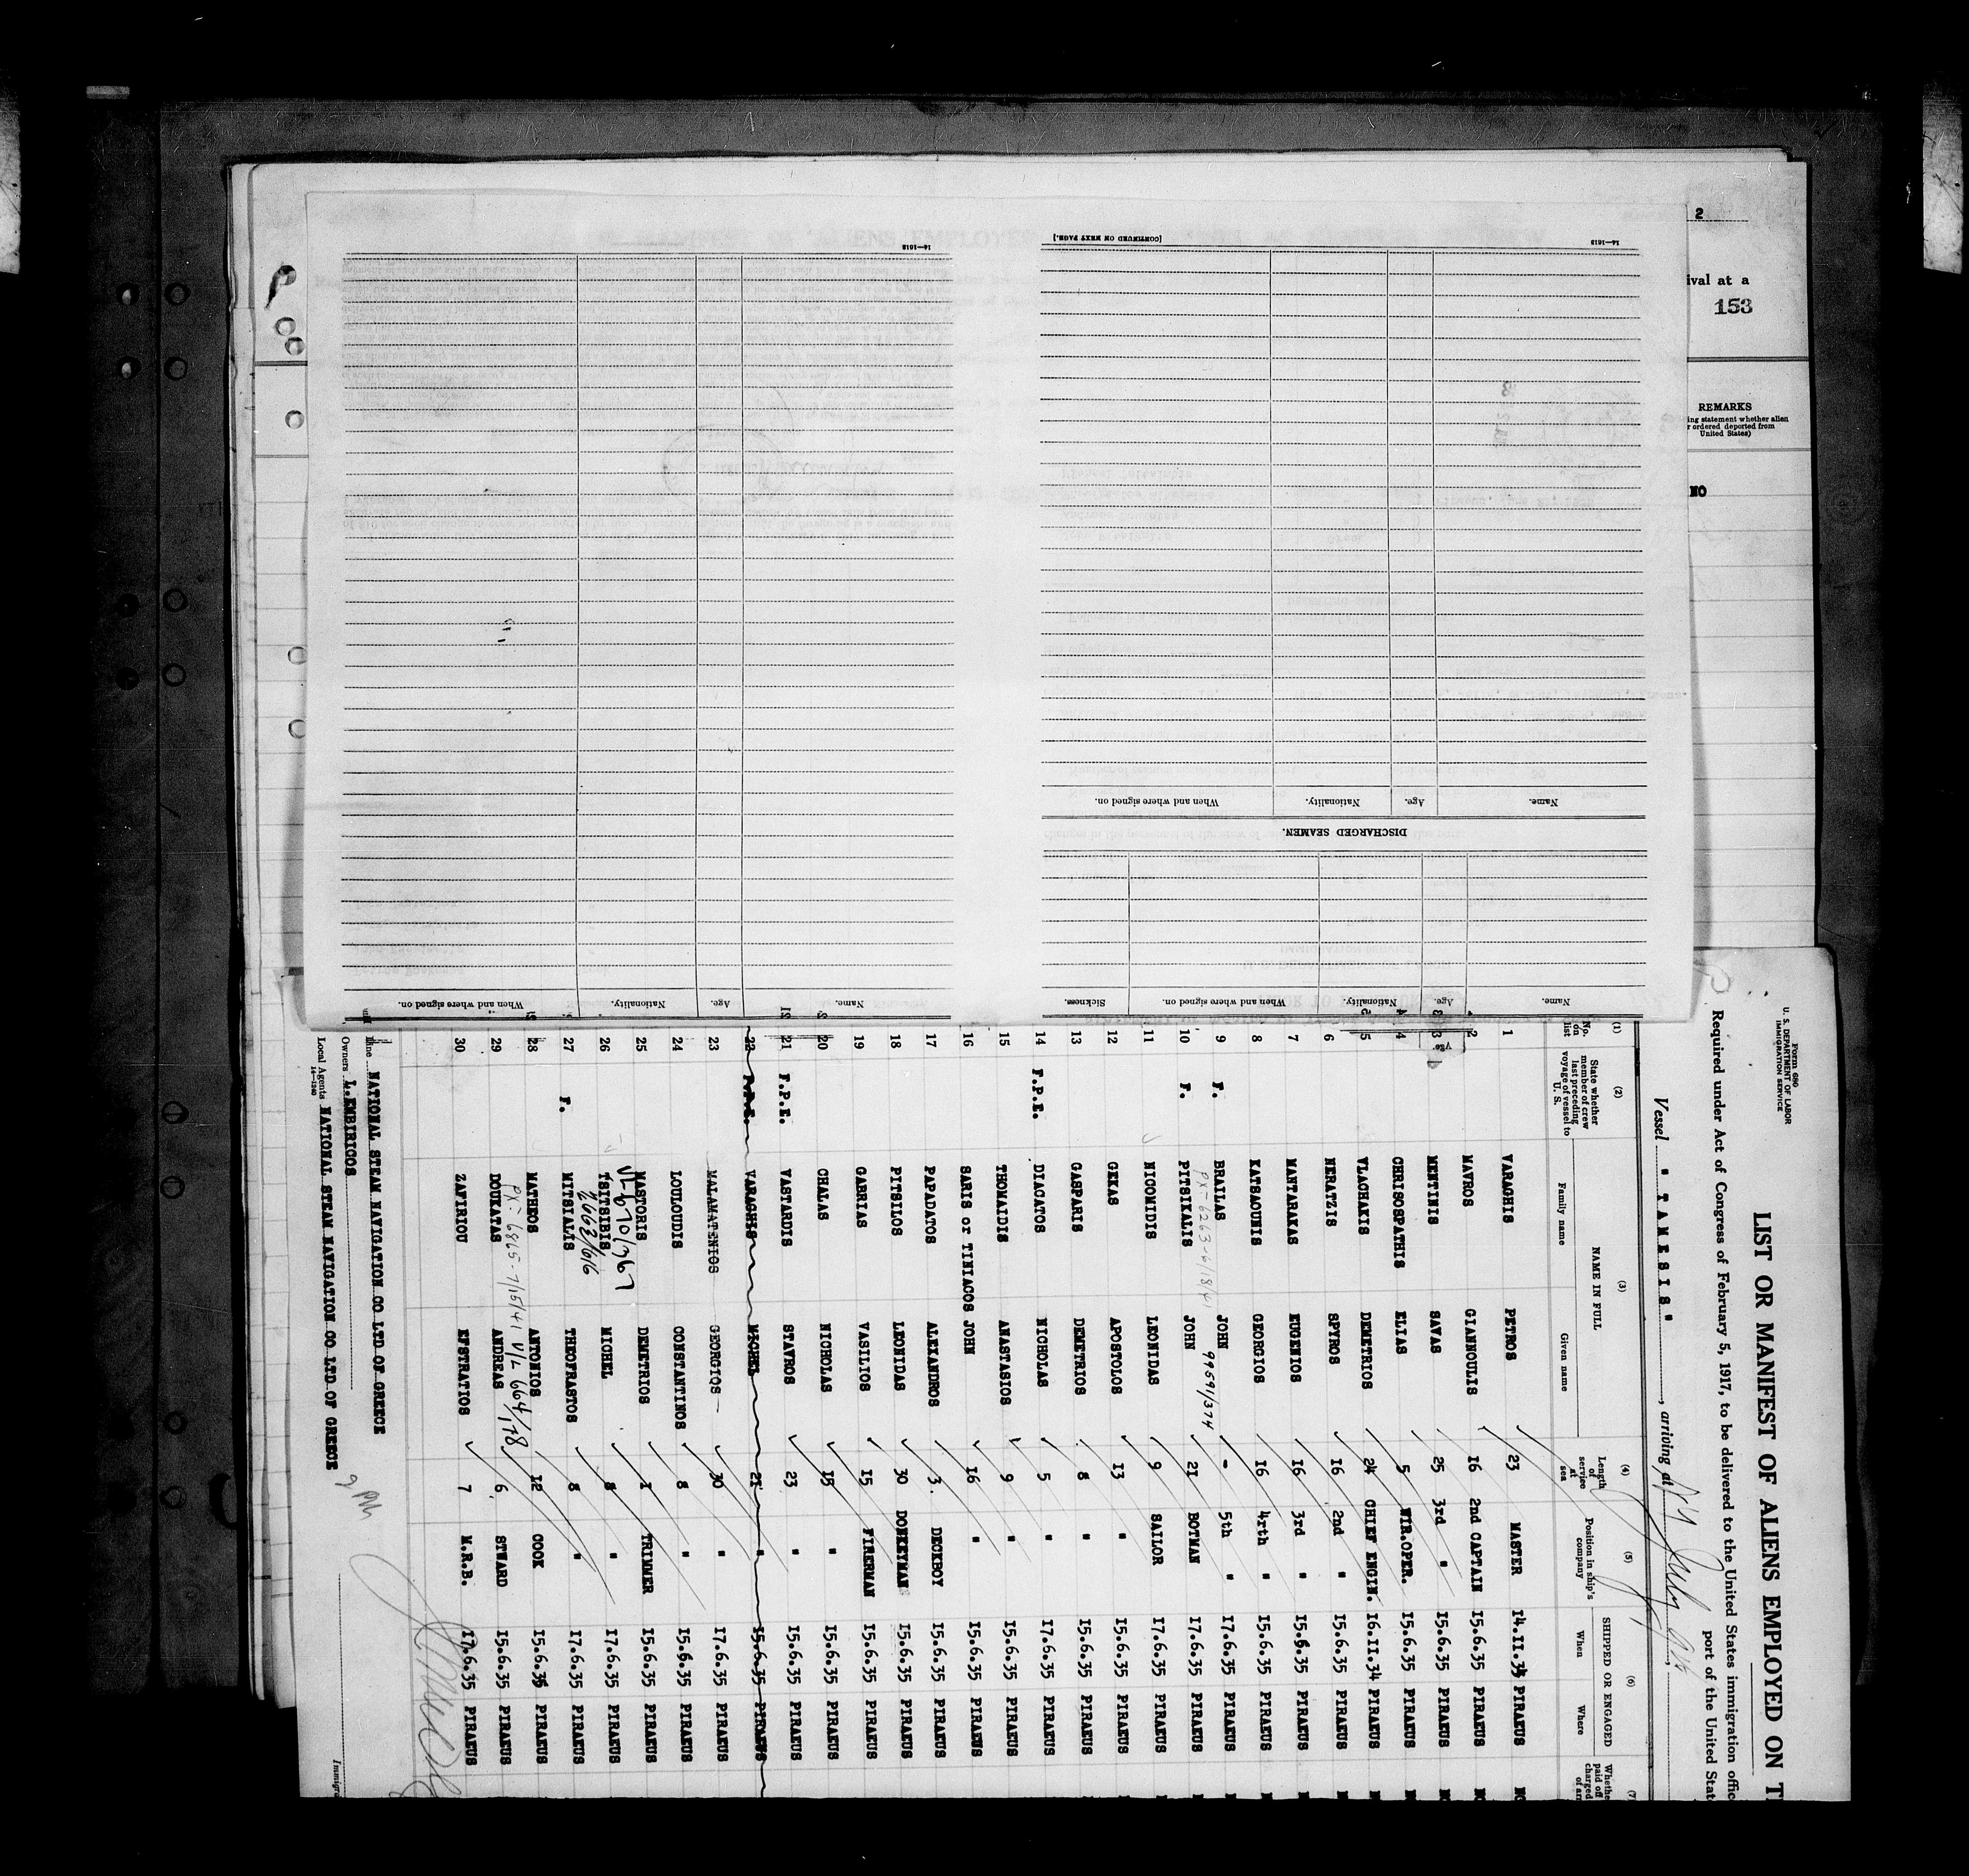 2
ival at a
153
REMARKS
ing statement whether alien
r ordered deported from
United States)
NO
14—1613
[CONTINUED ON NEXT PAGE.]
14—1613
Name.
Age.
Nationality.
When and where signed on.
DISCHARGED SEAMEN.
Name.
Age.
Nationality.
When and where signed on.
Sickness.
Name.
Age.
Nationality.
When and where signed on.
Form 680
U. S. DEPARTMENT OF LABOR
IMMIGRATION SERVICE
LIST OR MANIFEST OF ALIENS EMPLOYED ON T
Required under Act of Congress of February 5, 1917, to be delivered to the United States immigration offic
port of the United Stat
Vessel " TAMESIS ", arriving at N Y July
(1) (2) (3) (4) (5) (6) (7)
No. on list
State whether member of crew last preceding voyage of vessel to U. S.
NAME IN FULL
Family name Given name
Length of service at sea
Position in ship's company
SHIPPED OR ENGAGED
When Where
Whethe paid off charged of arri
1 VARAGHIS PETROS 23 MASTER 14.11.34 PIRAEUS NO
2 MAVROS GIANNOULIS 16 2nd CAPTAIN 15.6.35 PIRAEUS
3 MENTINIS SAVAS 25 3rd " 15.6.35 PIRAEUS
4 CHRISOSPATHIS ELIAS 5 WIR.OPER. 15.6.35 PIRAEUS
5 VLACHAKIS DEMETRIOS 24 CHIEF ENGIN. 16.11.34 PIRAEUS
6 NERATZIS SPYROS 16 2nd " 15.6.35 PIRAEUS
7 MANTARAKAS EUGENIOS 16 3rd " 15.6.35 PIRAEUS
8 KATSAOUNIS GEORGIOS 16 4rth " 15.6.35 PIRAEUS
9 F. BRAILAS JOHN - 5th " 17.6.35 PIRAEUS
99591/374
10 F. PITSIKALIS JOHN 21 BOTMAN 17.6.35 PIRAEUS
11 NICOMIDIS LEONIDAS 9 SAILOR 17.6.35 PIRAEUS
12 GEKAS APOSTOLOS 13 " 15.6.35 PIRAEUS
13 GASPARIS DEMETRIOS 8 " 15.6.35 PIRAEUS
14 F.P.E. DIACATOS NICHOLAS 5 " 17.6.35 PIRAEUS
15 THOMAIDIS ANASTASIOS 9 " 15.6.35 PIRAEUS
16 SARIS or TINIACOS JOHN 16 " 15.6.35 PIRAEUS
17 PAPADATOS ALEXANDROS 3. DECKBOY 15.6.35 PIRAEUS
18 PITSILOS LEONIDAS 30 DONKEYMAN 15.6.35 PIRAEUS
19 GABRIAS VASILIOS 15 FIRERMAN 15.6.35 PIRAEUS
20 CHALAS NICHOLAS 15 " 15.6.35 PIRAEUS
21 F.P.E. VASTARDIS STAVROS 23 " 15.6.35 PIRAEUS
22 F.P.E. VARAGHIS MICHEL 21 " 15.6.35 PIRAEUS
23 MALAMATENIOS GEORGIOS 30 " 17.6.35 PIRAEUS
24 LOULOUDIS CONSTANTINOS 8 " 15.6.35 PIRAEUS
25 MASTORIS DEMETRIOS 1 TRIMMER 15.6.35 PIRAEUS
VL 670/367
26 TSITSIBIS MICHEL 8 " 17.6.35 PIRAEUS
27 F. MITSIALIS THEOFRASTOS 8 " 17.6.35 PIRAEUS
28 MATHEOS ANTONIOS 12 COOK 15.6.35 PIRAEUS
PX-6865-7/15/41 V/L 664/178
29 DOUKATAS ANDREAS 6 STWARD 15.6.35 PIRAEUS
30 ZAFIRIOU EFSTRATIOS 7 M.R.B. 17.6.35 PIRAEUS
Line NATIONAL STEAM NAVIGATION CO LTD OF GREECE
Owners L.EMBIRICOS
Local Agents NATIONAL STEAM NAVIGATION CO LTD OF GREECE
14—1240
Immigra